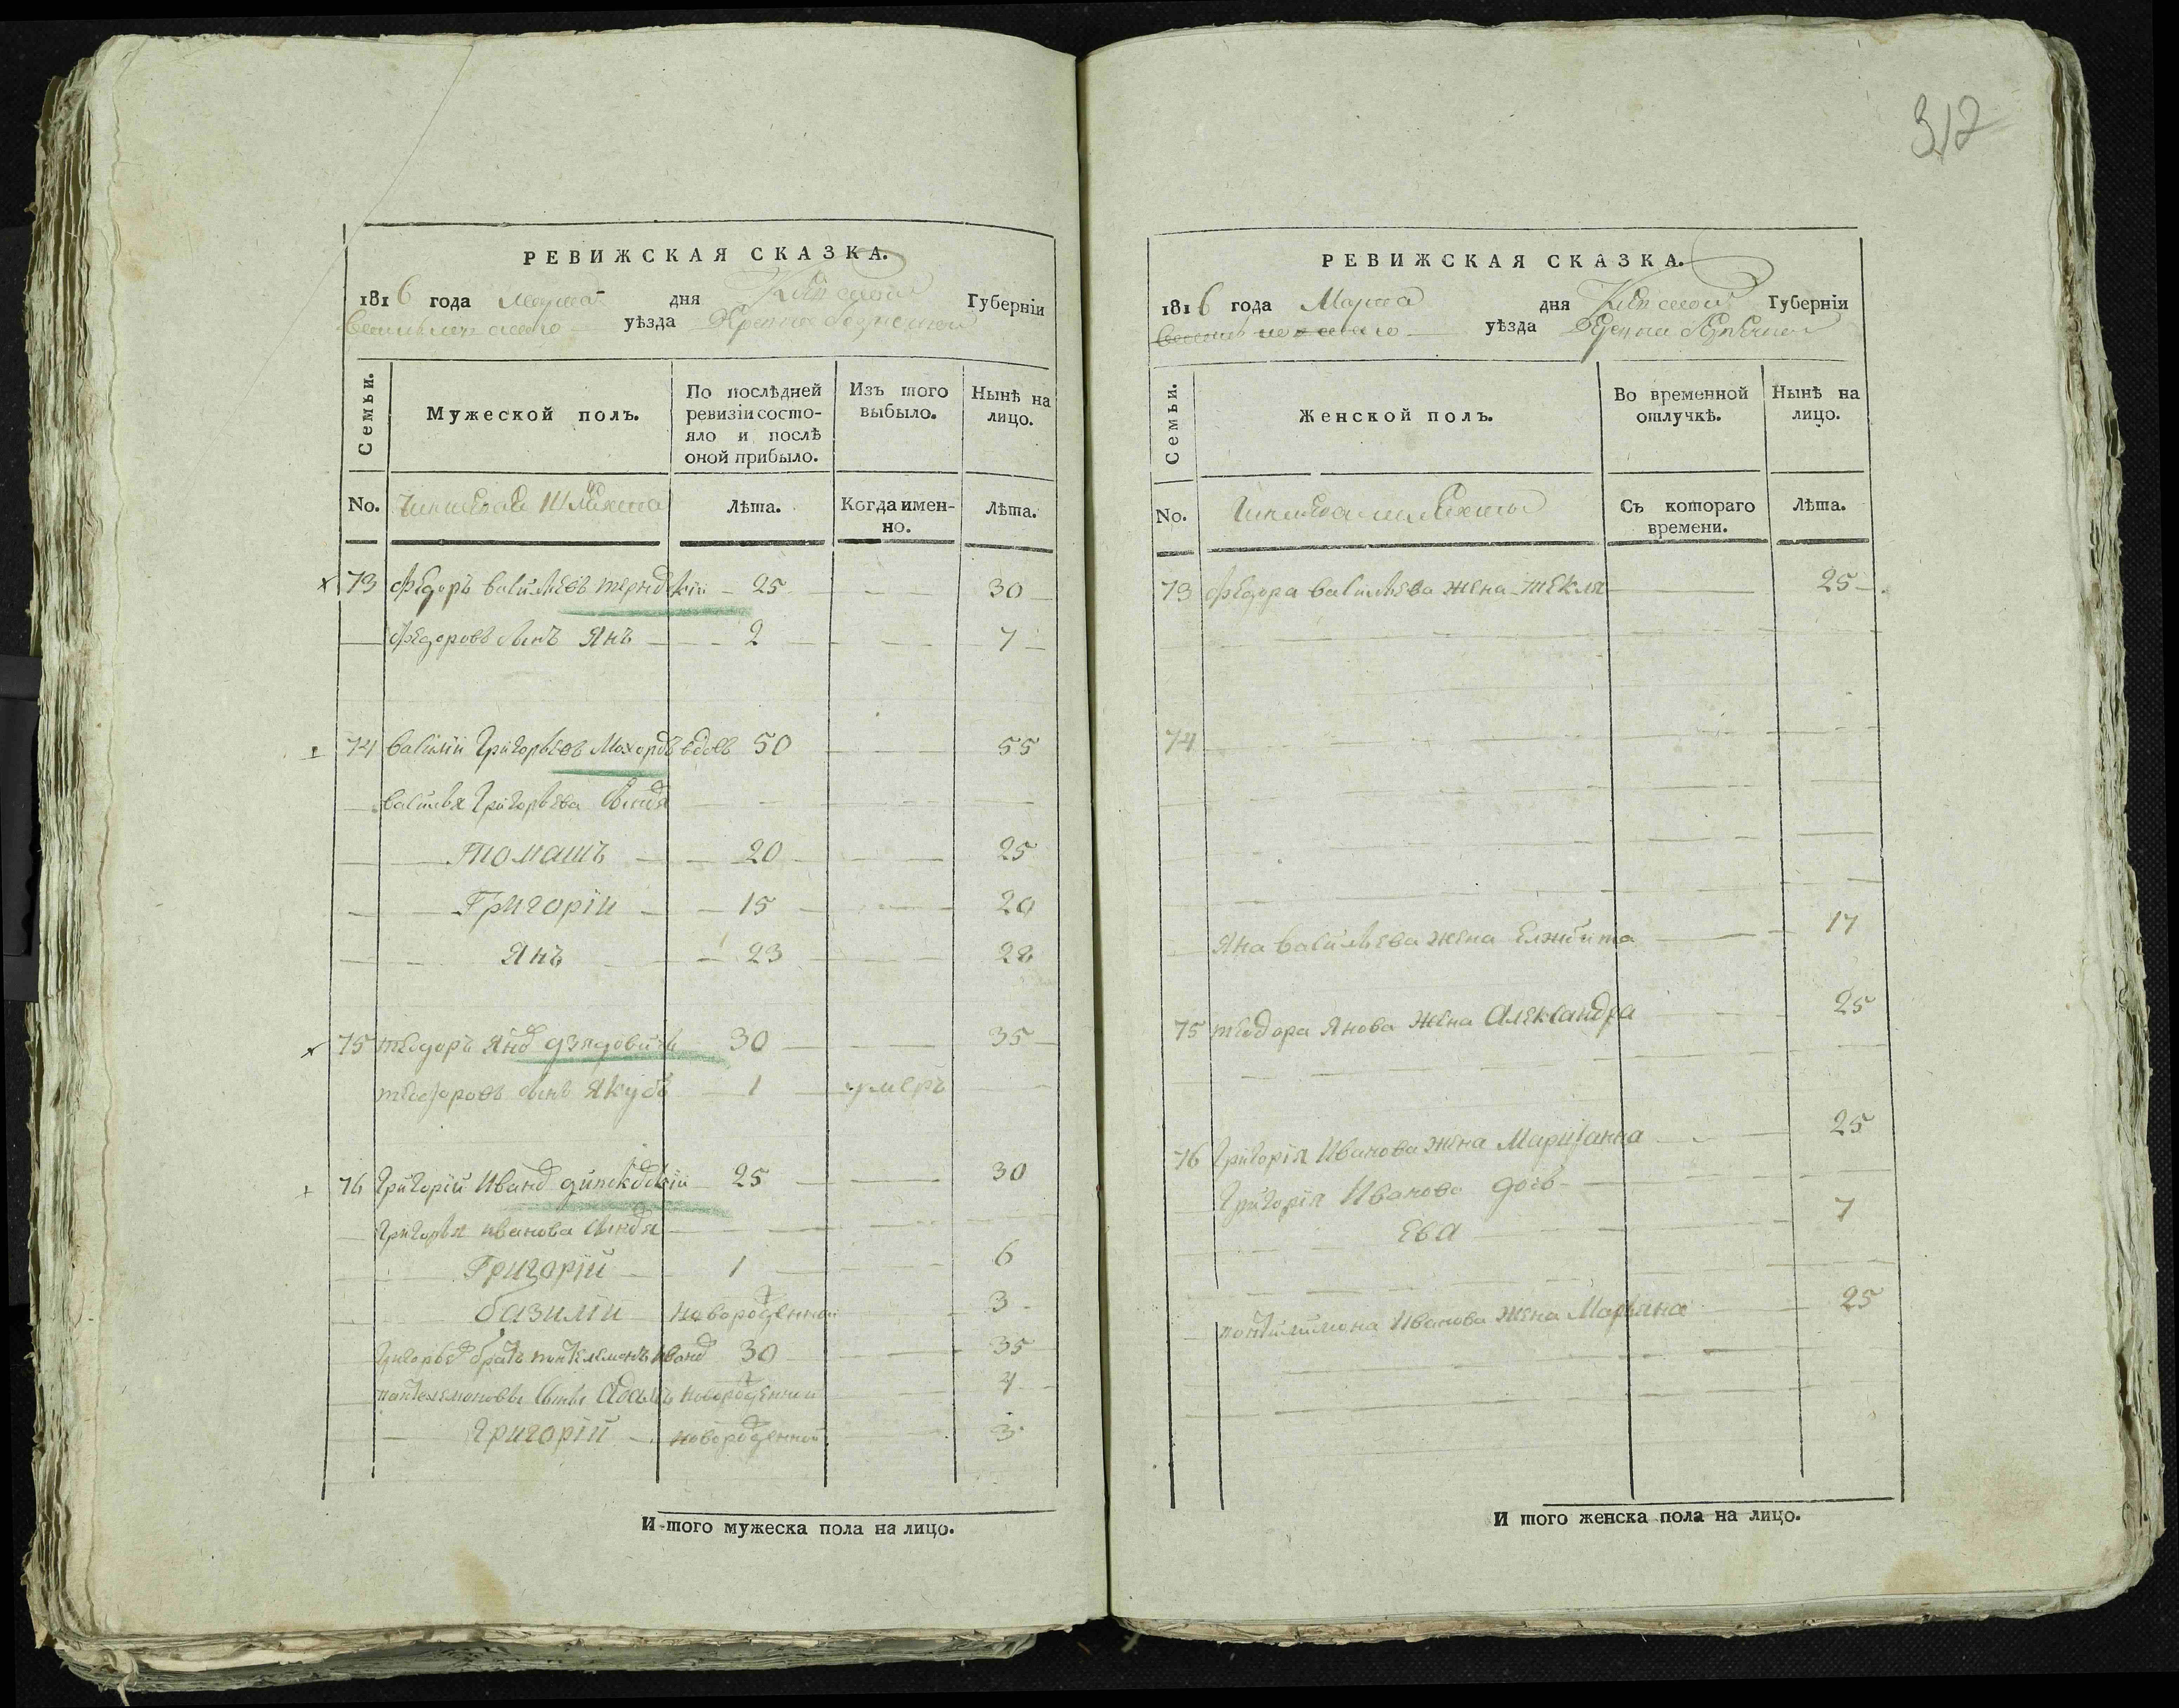 312
РЕВИЖСКАЯ СКАЗКА.
1816 года Марта дня Киевской Губерніи
уѣзда
Семьи.
Мужеской полъ.
По послѣдней ревизіи состо-
яло и послѣ
оной прибыло.
Изъ того
выбыло.
Нынѣ на
лицо.
No. Чиншевая Шляхта
Лѣта.
Когда имен-
но.
Лѣта.
73 Федоръ Васильевъ 25 30
Федоровъ сынъ Янъ 2 7
74 Василій Григорьевъ вдовъ 50 55
Василья Григорьева сыновья
Томашъ 20 25
Григорій 15 20
Янъ 23 28
75 теодоръ Янов 30 35
теодоровъ сынъ Якубъ 1 умеръ
76 Григорій Иванов 25 30
Григорья Иванова сыновья
Григорій 1 6
базилій новорожденной 3
Григорьев братъ пантелемонъ Иванов 30 35
пантелемоновы сыны Адамъ новорожденной 4
Григорій новорожденной 3
И того мужеска пола на лицо.
РЕВИЖСКАЯ СКАЗКА.
1816 года Марта дня Киевской Губерніи
уѣзда
Семьи.
Женской полъ.
Во временной
отлучкѣ.
Нынѣ на
лицо.
No. Чиншевая шляхта
Съ котораго
времени.
Лѣта.
73 Федора Васильева жена текля 25
74
Яна Васильева жена Елжбита 17
75 теодора Янова жена Александра 25
76 Григорія Иванова жена Мариjанна 25
Григорія Иванова дочь
Ева 7
понтилимона Иванова жена Марьяна 25
И того женска пола на лицо.